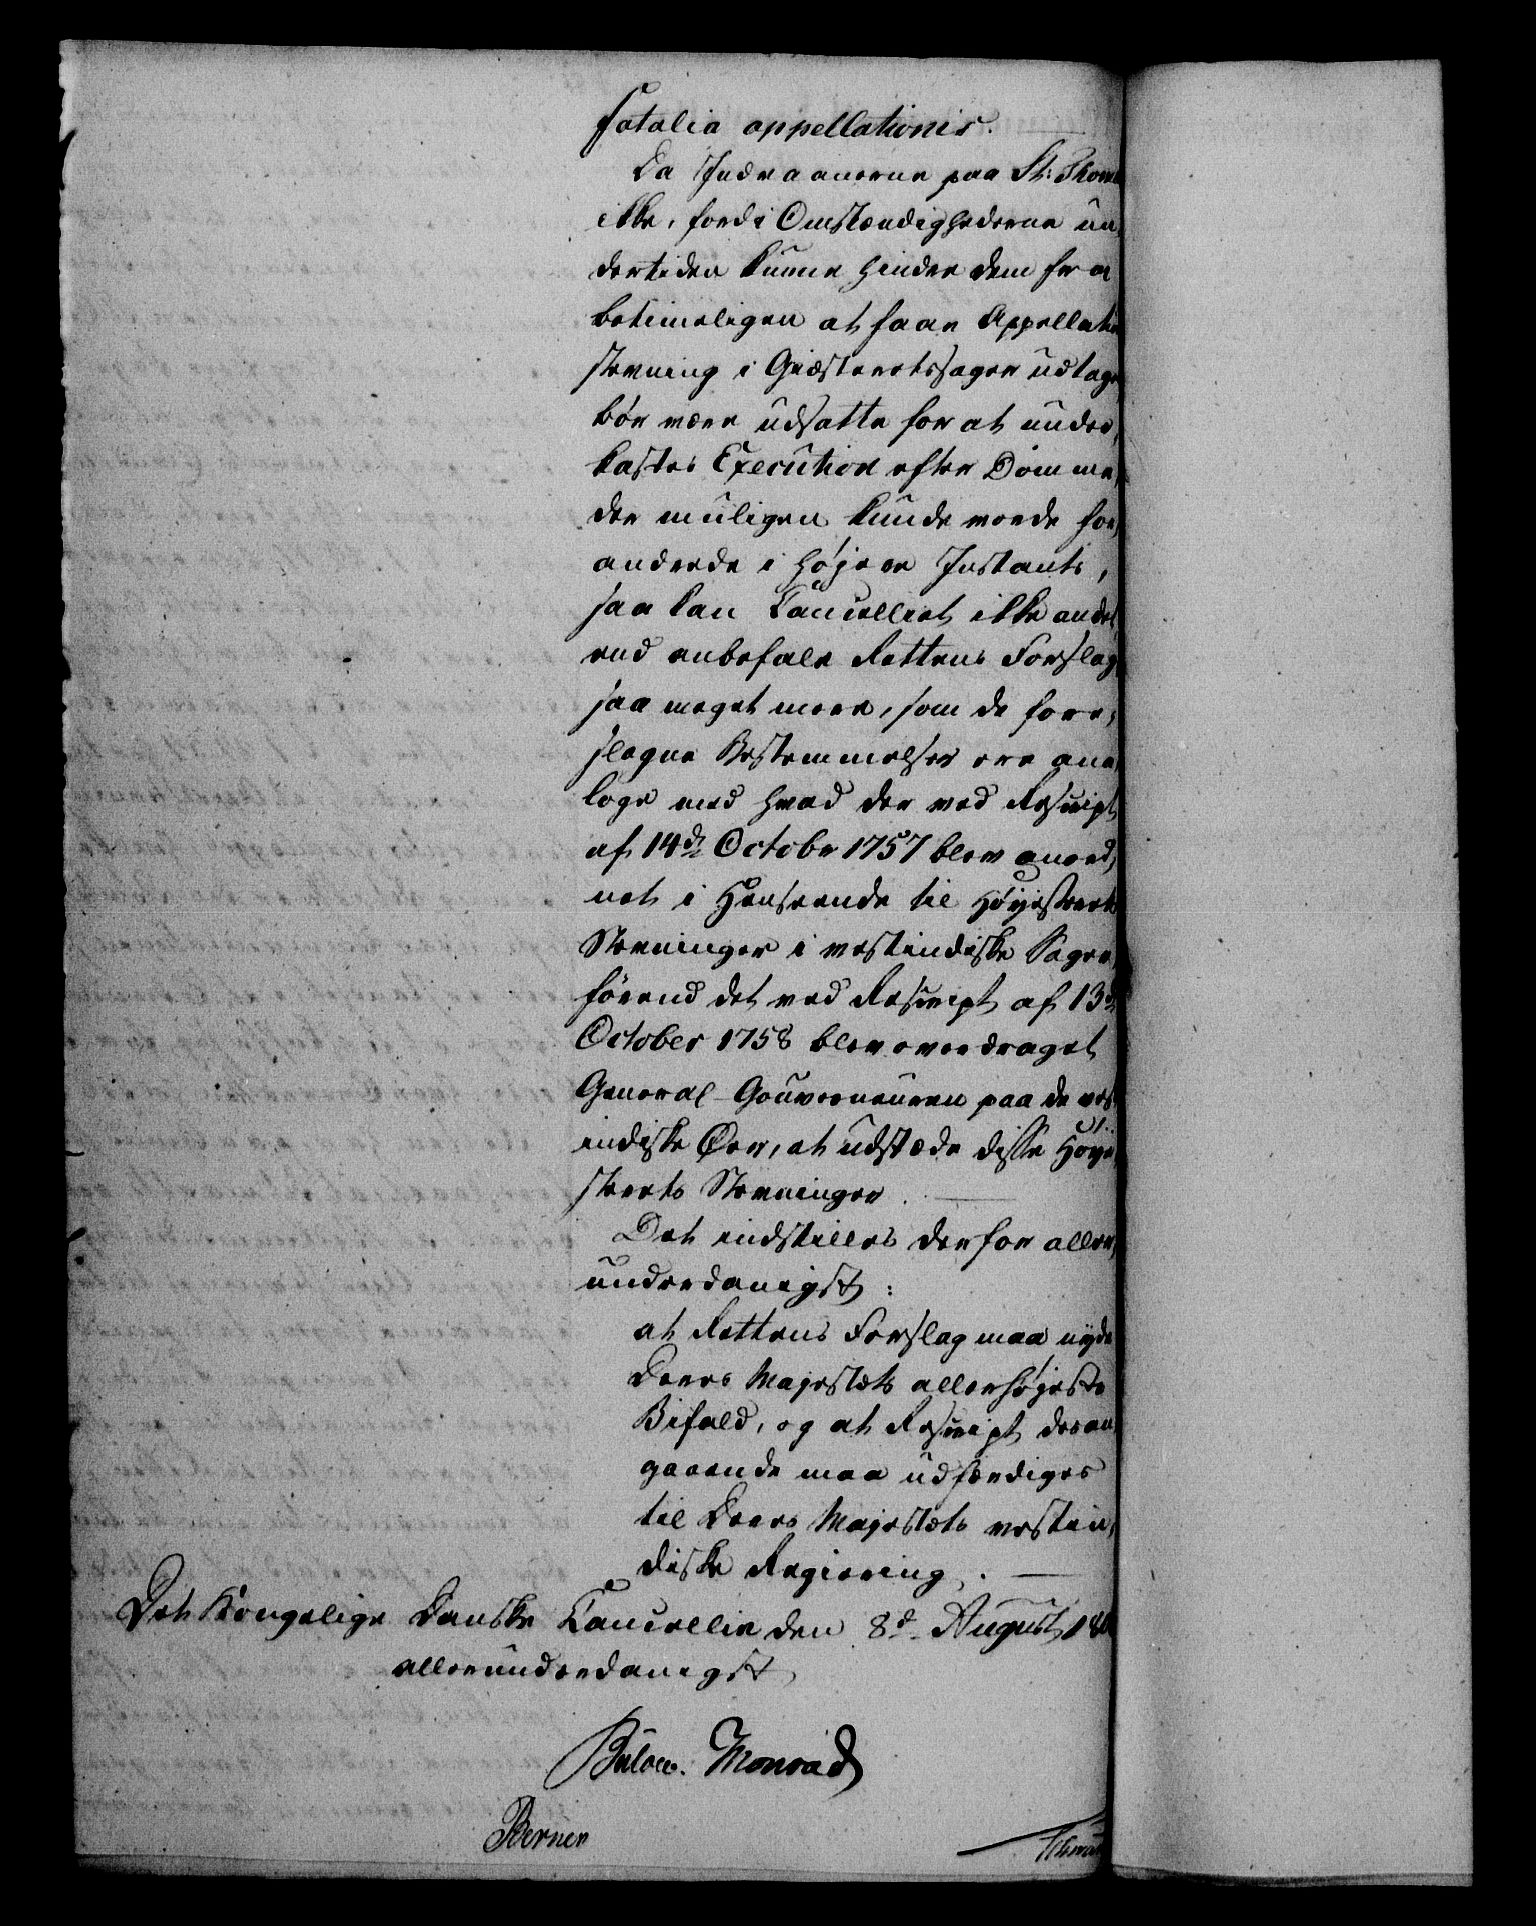 fatalia appellationis.
Da Indvaanerne paa St: Thom
ikke, fordi Omstændighederne un,
dertiden kunne hindre dem fra
betimeligen at faae Appellati
stevning i Giæsteretssager udtage
bør være udsatte for at under,
kastes Execution efter Domme,
der muligen kunde vorde for,
andrede i højere Instants,
saa kan Cancelliet ikke andet
end anbefale Rettens Forslag
saa meget mere, som de fore,
slagne Bestemmelser ere ana,
loge med hvad der ved Rescript
af 14de Octobr 1757 blev anord,
net i Henseende til Høyesterets
Stevninger i vestindiske Sager,
førend det ved Rescript af 13de
October 1758 blev overdraget
General-Gouverneuren paa de vest
indiske Øer, at udstæde disse Høye
sterets Stevninger.
Det indstilles derfor aller,
underdanigst:
at Rettens Forslag maa nyde
Deres Majestæts allerhøjeste
Bifald, og at Rescript desan,
gaaende maa udfærdiges
til Deres Majestæts vestin,
diske Regiering.
Det Kongelige Danske Cancellie den 8d August 18
allerunderdanigst
Bülow. Monrad
Berner